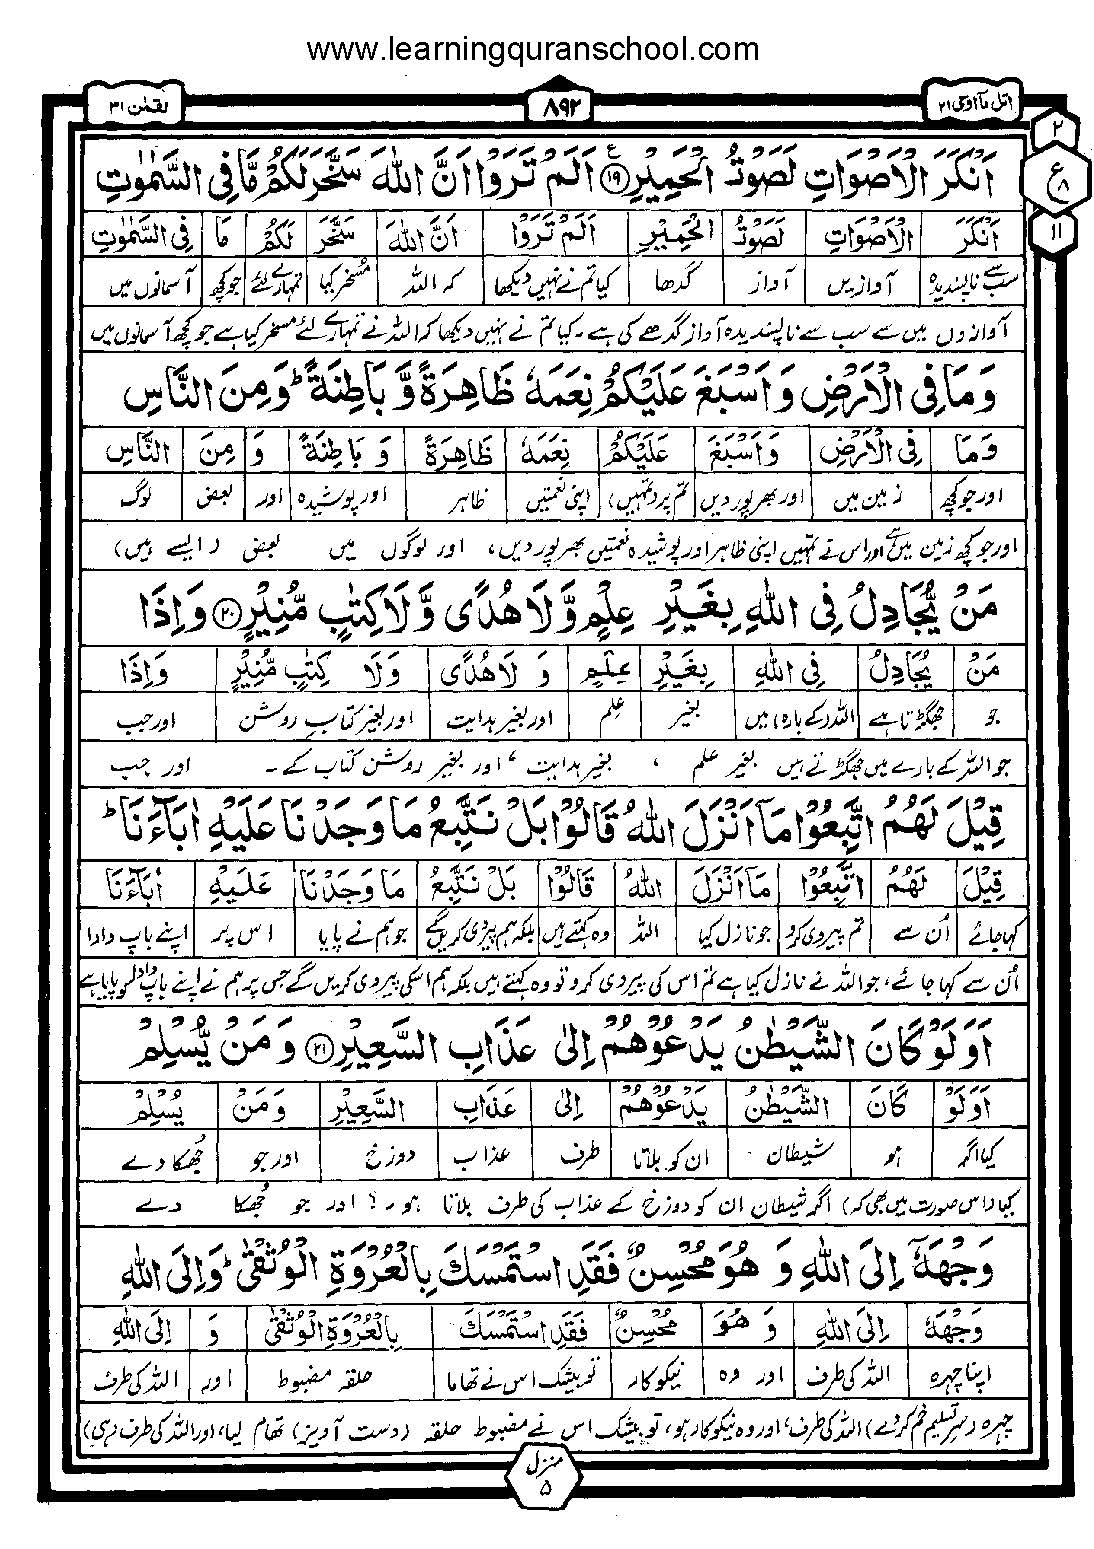 www.learningquranschool.com
اتل مآ اوحی ۲۱
۸۹۲
لقمٰن ۳۱
۲
ع
۸
۱۱
اَنْكَرَ الْاَصْوَاتِ لَصَوْتُ الْحَمِيْرِ ۱۹ اَلَمْ تَرَوْا اَنَّ اللّٰهَ سَخَّرَ لَكُمْ مَّا فِى السَّمٰوٰتِ
اَنْكَرَ الْاَصْوَاتِ لَصَوْتُ الْحَمِيْرِ اَلَمْ تَرَوْا اَنَّ اللّٰهَ سَخَّرَ لَكُمْ مَا فِى السَّمٰوٰتِ
سب سے ناپسندیدہ آوازیں آواز گدھا کیا تم نے نہیں دیکھا کہ اللہ مسخر کیا تمہارے لئے جو کچھ آسمانوں میں
آوازوں میں سے سب سے ناپسندیدہ آواز گدھے کی ہے۔ کیا تم نے نہیں دیکھا کہ اللہ نے تمہارے لئے مسخر کیا ہے جو کچھ آسمانوں میں
وَمَا فِى الْاَرْضِ وَاَسْبَغَ عَلَيْكُمْ نِعَمَهٗ ظَاهِرَةً وَّبَاطِنَةً ؕ وَمِنَ النَّاسِ
وَمَا فِى الْاَرْضِ وَاَسْبَغَ عَلَيْكُمْ نِعَمَهٗ ظَاهِرَةً وَّبَاطِنَةً وَ مِنَ النَّاسِ
اور جو کچھ زمین میں اور بھرپور دیں تم پر (تمہیں) اپنی نعمتیں ظاہر اور پوشیدہ اور بعض لوگ
اور جو کچھ زمین میں ہے اور اس نے تمہیں اپنی ظاہر اور پوشیدہ نعمتیں بھرپور دیں، اور لوگوں میں بعض (ایسے ہیں)
مَنْ يُّجَادِلُ فِى اللّٰهِ بِغَيْرِ عِلْمٍ وَّلَا هُدًى وَّلَا كِتٰبٍ مُّنِيْرٍ ۲۰ وَاِذَا
مَنْ يُجَادِلُ فِى اللّٰهِ بِغَيْرِ عِلْمٍ وَلَا هُدًى وَلَا كِتٰبٍ مُّنِيْرٍ وَاِذَا
جو جھگڑتا ہے اللہ (کے بارہ) میں بغیر علم اور بغیر ہدایت اور بغیر کتاب روشن اور جب
جو اللہ کے بارے میں جھگڑتے ہیں بغیر علم ، بغیر ہدایت ، اور بغیر روشن کتاب کے۔ اور جب
قِيْلَ لَهُمُ اتَّبِعُوْا مَآ اَنْزَلَ اللّٰهُ قَالُوْا بَلْ نَتَّبِعُ مَا وَجَدْنَا عَلَيْهِ اٰبَآءَنَا ؕ
قِيْلَ لَهُمُ اتَّبِعُوْا مَآ اَنْزَلَ اللّٰهُ قَالُوْا بَلْ نَتَّبِعُ مَا وَجَدْنَا عَلَيْهِ اٰبَآءَنَا
کہا جائے اُن سے تم پیروی کرو جو نازل کیا اللہ وہ کہتے ہیں بلکہ ہم پیروی کریں گے جو ہم نے پایا اس پر اپنے باپ دادا
اُن سے کہا جائے، جو اللہ نے نازل کیا ہے تم اس کی پیروی کرو تو وہ کہتے ہیں بلکہ ہم اسکی پیروی کریں گے جس پر ہم نے اپنے باپ دادا کو پایا ہے
اَوَلَوْ كَانَ الشَّيْطٰنُ يَدْعُوْهُمْ اِلٰى عَذَابِ السَّعِيْرِ ۲۱ وَمَنْ يُّسْلِمْ
اَوَلَوْ كَانَ الشَّيْطٰنُ يَدْعُوْهُمْ اِلٰى عَذَابِ السَّعِيْرِ وَمَنْ يُسْلِمْ
کیا اگر ہو شیطان ان کو بلاتا طرف عذاب دوزخ اور جو جُھکا دے
کیا (اس صورت میں بھی کہ) اگر شیطان ان کو دوزخ کے عذاب کی طرف بلاتا ہو۔؟ اور جو جُھکا دے
وَجْهَهٗٓ اِلَى اللّٰهِ وَهُوَ مُحْسِنٌ فَقَدِ اسْتَمْسَكَ بِالْعُرْوَةِ الْوُثْقٰى ؕ وَاِلَى اللّٰهِ
وَجْهَهٗ اِلَى اللّٰهِ وَهُوَ مُحْسِنٌ فَقَدِ اسْتَمْسَكَ بِالْعُرْوَةِ الْوُثْقٰى وَ اِلَى اللّٰهِ
اپنا چہرہ اللہ کی طرف اور وہ نیکوکار تو بیشک اس نے تھاما حلقہ مضبوط اور اللہ کی طرف
چہرہ (سر تسلیم خم کر دے) اللہ کی طرف، اور وہ نیکوکار ہو، تو بیشک اس نے مضبوط حلقہ (دست آویز) تھام لیا، اور اللہ کی طرف (ہی)
منزل
۵